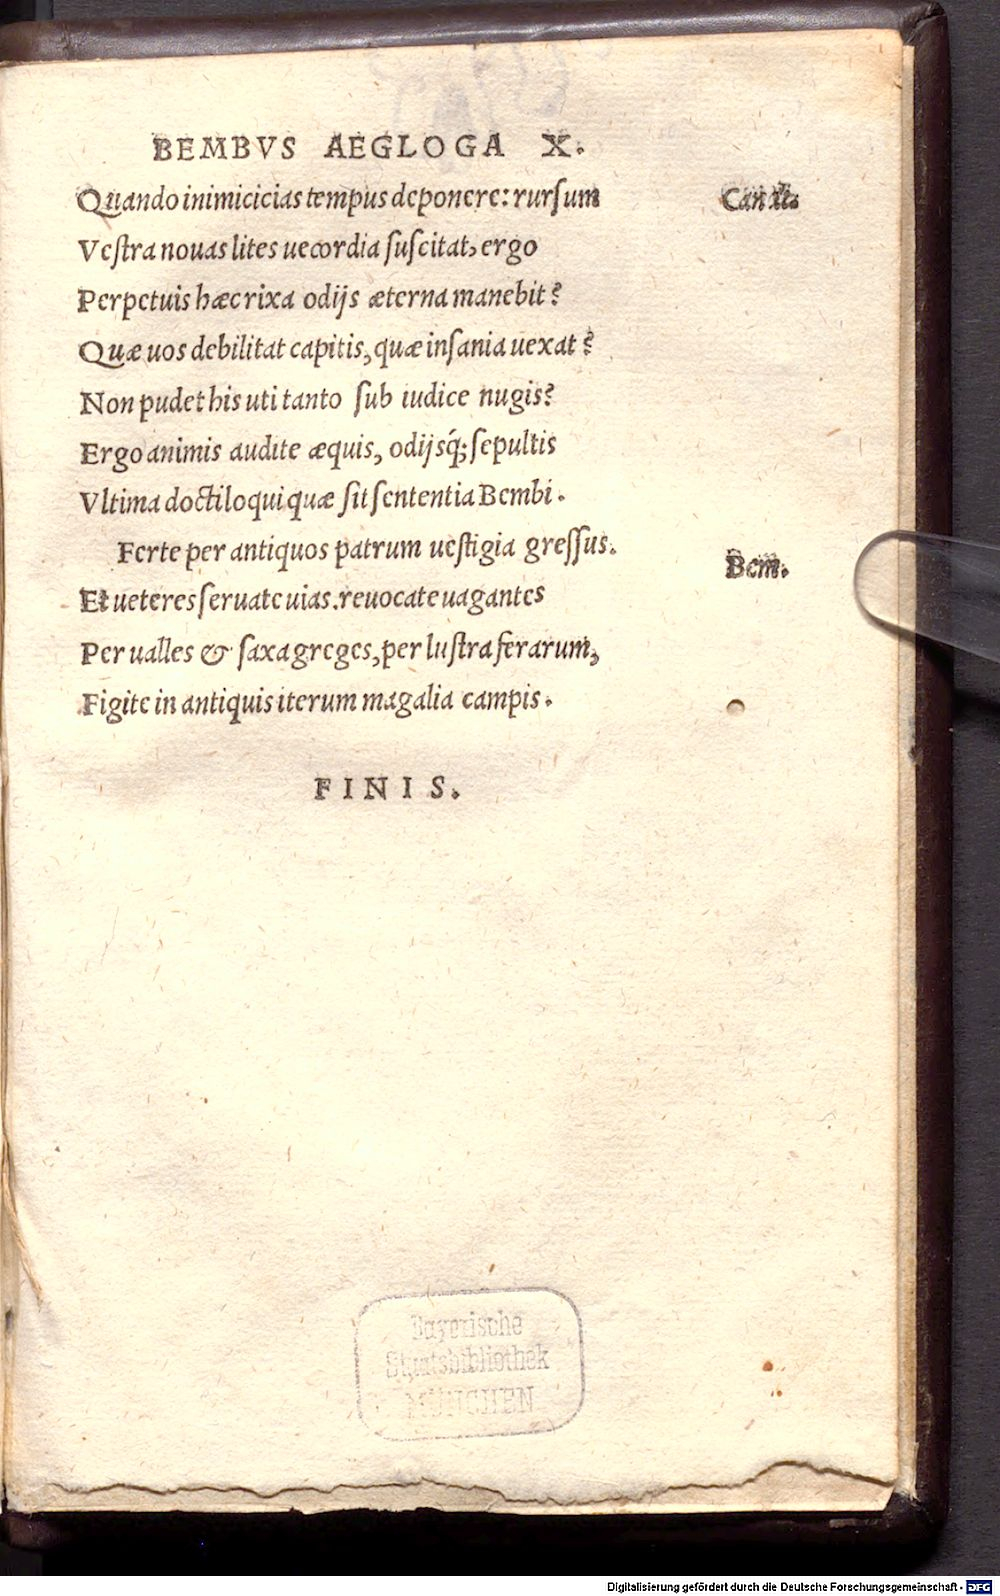 BEMBVS AEGLOGA X.
Quando inimicicias tempus deponere: rurſum Candi.
Veſtra nouas lites uecordia ſuſcitat, ergo
Perpetuis hæc rixa odijs æterna manebit?
Quæ uos debilitat capitis, quæ inſania uexat?
Non pudet his uti tanto ſub iudice nugis?
Ergo animis audite æquis, odijsq́; ſepultis
Vltima doctiloqui quæ ſit ſententia Bembi.
Ferte per antiquos patrum ueſtigia greſſus. Bem.
Et ueteres ſeruate uias. reuocate uagantes
Per ualles & ſaxa greges, per luſtra ferarum,
Figite in antiquis iterum magalia campis.
FINIS.
Bayerische
Staatsbibliothek
MÜNCHEN
Digitalisierung gefördert durch die Deutsche Forschungsgemeinschaft - DFG